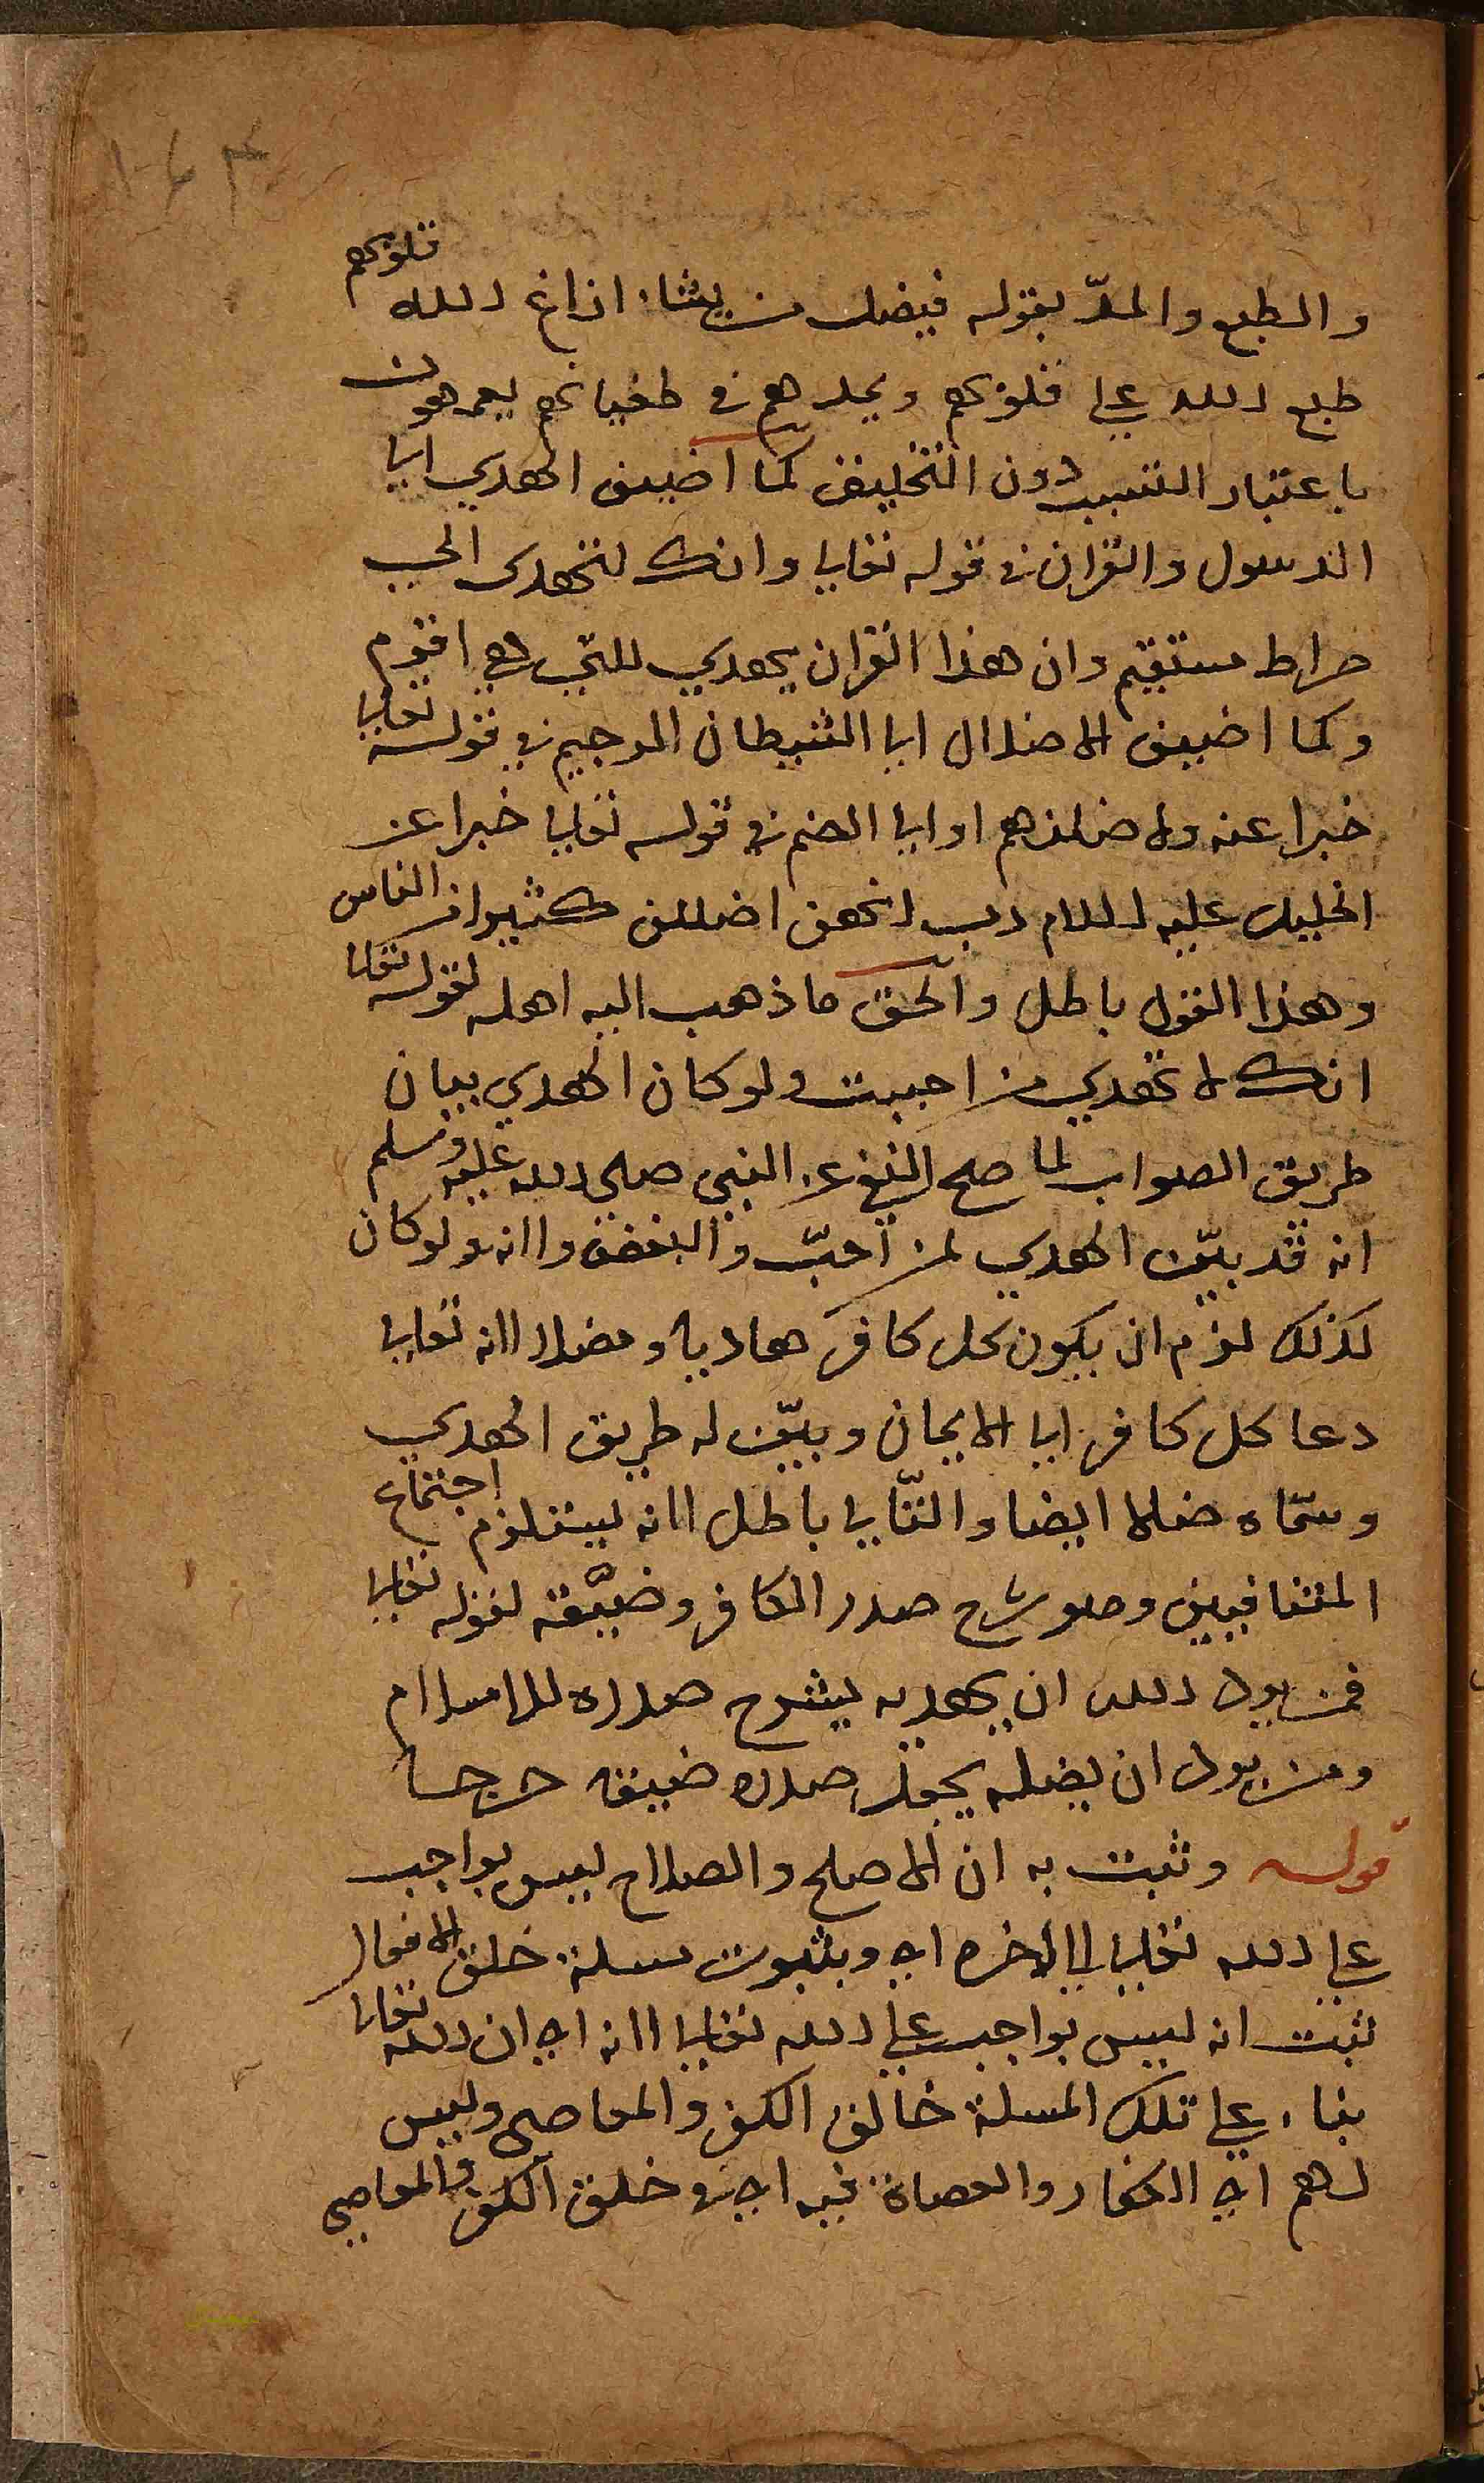 والطبع والمدّ بقوله فيضل من يشاء ازاغ الله قلوبهم
طبع الله على قلوبهم ويمدهم في طغيانهم يعمهون
باعتبار التسبب دون التخليق كما اضيف الهدي الى
الرسول والقران في قوله تعالى وانك لتهدى الى
صراط مستقيم وان هذا القران يهدي للتي هي اقوم
وكما اضيف الاضلال الى الشيطان الرجيم في قوله تعالى
خبرا عنه ولاضلنهم او الى الصنم في قوله تعالى خبرا عن
الخليل عليه السلام رب انهن اضللن كثيرا من الناس
وهذا القول باطل والحق ما ذهب اليه اهله لقوله تعالى
انك لا تهدي من احببت ولو كان الهدي بيان
طريق الصواب لما صح النفي عن النبي صلى الله عليه وسلم
انه قد بيّن الهدي لمن احبّ وابغض والانه لو كان
كذلك لزم ان يكون كل كافر هاديا ومضلا لانه تعالى
دعا كل كافر الى الايمان وبيّن له طريق الهدي
وسمّاه ضالا ايضا والتّالي باطل لانه يستلزم اجتماع
المتنافيين وهو شرح صدر الكافر وضيّقه لقوله تعالى
فمن يرد الله ان يهديه يشرح صدره للاسلام
ومن يرد ان يضله يجعل صدره ضيقا حرجا
قوله وثبت به ان الاصلح والصلاح ليس بواجب
على الله تعالى الى الاخره اي وبثبوت مسلة خلق الافعال
ثبت انه ليس بواجب على الله تعالى لانه اي ان الله تعالى
بناء على تلك المسلة خالق الكفر والمعاصى وليس
لهم اي الكفار والعصاة فيه اي في خلق الكفر والمعاصى